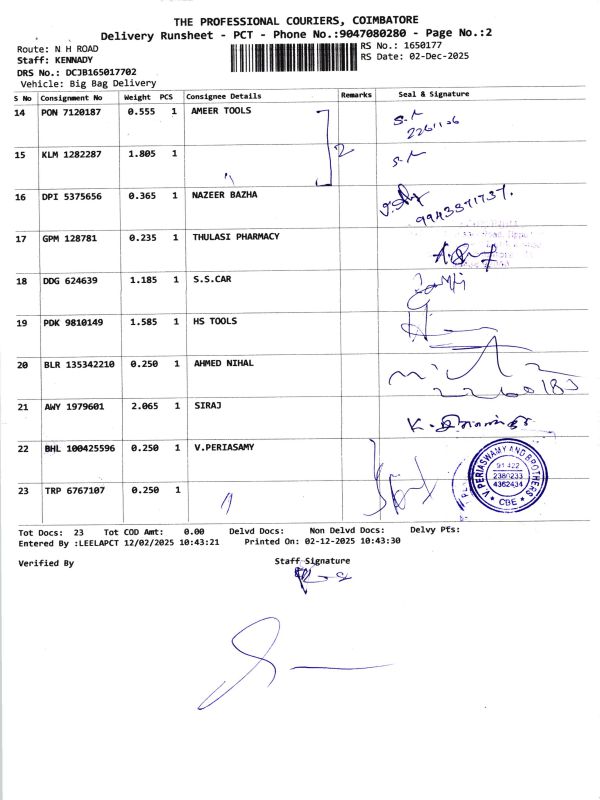 THE PROFESSIONAL COURIERS, COIMBATORE
Delivery Runsheet - PCT - Phone No.:9047080280 - Page No.:2
Route: N H ROAD
RS No.: 1650177
Staff: KENNADY
RS Date: 02-Dec-2025
DRS No.: DCJB165017702
Vehicle: Big Bag Delivery
S No Consignment No Weight PCS Consignee Details Remarks Seal & Signature
14 PON 7120187 0.555 1 AMEER TOOLS
15 KLM 1282287 1.805 1 " 2
16 DPI 5375656 0.365 1 NAZEER BAZHA
17 GPM 128781 0.235 1 THULASI PHARMACY
18 DDG 624639 1.185 1 S.S.CAR
19 PDK 9810149 1.585 1 HS TOOLS
20 BLR 135342210 0.250 1 AHMED NIHAL
21 AWY 1979601 2.065 1 SIRAJ
22 BHL 100425596 0.250 1 V.PERIASAMY
V.PERIASWAMY AND BROTHERS
91 422
2380233
4362434
* CBE *
23 TRP 6767107 0.250 1 "
Tot Docs: 23 Tot COD Amt: 0.00 Delvd Docs: Non Delvd Docs: Delvy PEs:
Entered By :LEELAPCT 12/02/2025 10:43:21 Printed On: 02-12-2025 10:43:30
Verified By
Staff Signature